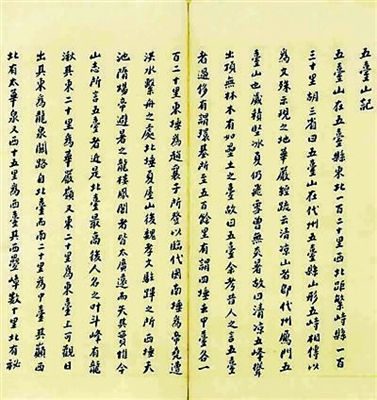 五臺山記
五臺山在五臺縣東北一百二十里西北距繁峙縣一百
三十里胡三省曰五臺山在代州五臺縣山形五峙相傳以
為文殊示現之地華嚴經疏云清涼山者即代州鴈門五
臺山也歲積堅冰夏仍飛雪曾無炎暑故曰清涼五峰聳
出頂無林木有如壘土之臺故曰五臺余考昔人之言五臺
者過侈有謂環基所至五百餘里有謂四埵去中臺各一
百二十里東埵為趙襄子所登以臨代國南埵為帝堯遭
洪水繫舟之處北埵夏屋山後魏孝文駐蹕之所西埵天
池隋煬帝避暑之龍樓鳳闕者皆太廣遠而失其實惟今
山志所言五臺者近是北臺最高後人名之叶斗峰有龍
湫其東二十里為華嚴嶺又東二十里為東臺上可觀日
出其東為龍泉關路自北臺而南二十里為中臺其巔西
北有太華泉又西十五里為西臺其西疊嶂數十里北有祕